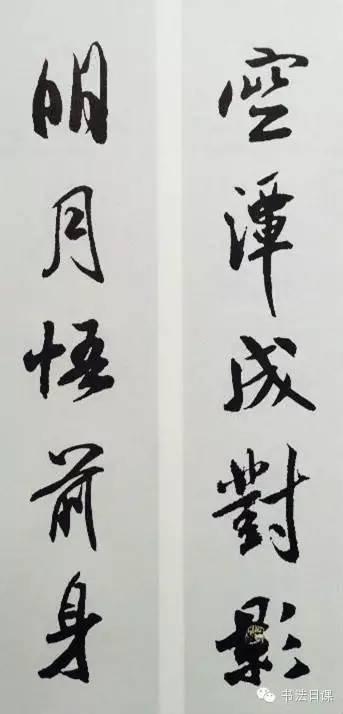 空潭成對影
明月悟前身
书法日课